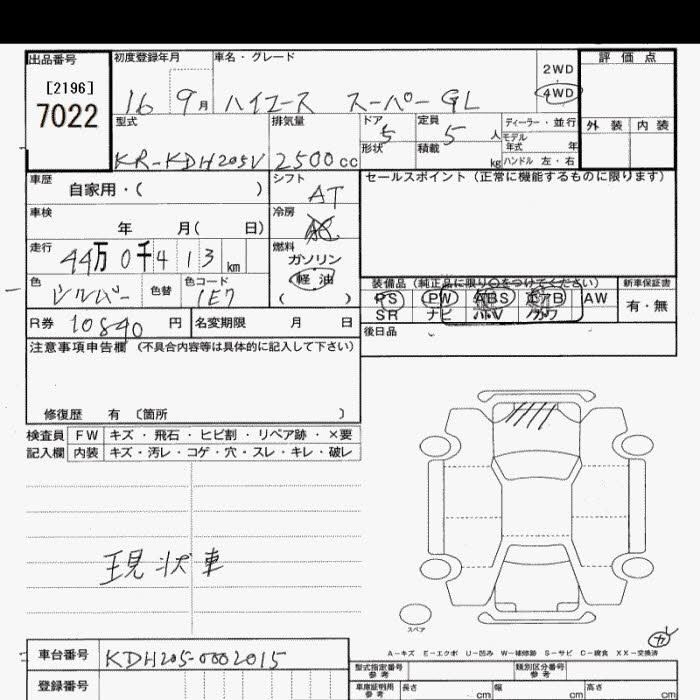 出品番号 初度登録年月 車名・グレード 評価点
[2196]
7022
16 9月 ハイエース スーパーGL 2WD 4WD
外装 内装
型式 排気量 ドア 定員 ディーラー・並行
5 5人 モデル年式 年
形状 積載 kg ハンドル 左・右
KR-KDH205V 2500cc
車歴 自家用・( ) シフト AT セールスポイント(正常に機能するものに限ります)
車検 年 月( 日) 冷房
走行 44万0千413km 燃料 ガソリン 軽油 ( )
色 シルバー 色替 色コード 1E7
装備品(純正品に限り○をつけてください) 新車保証書
PS PW ABS エアB AW 有・無
SR ナビ
R券 10840円 名変期限 月 日 後日品
注意事項申告欄(不具合内容等は具体的に記入して下さい)
修復歴 有 〔箇所 〕
検査員 FW キズ・飛石・ヒビ割・リペア跡・×要
記入欄 内装 キズ・汚レ・コゲ・穴・スレ・キレ・破レ
現状車
スペア
A-キズ E-エクボ U-凹み W-補修跡 S-サビ C-腐食 XX-交換済
車台番号 KDH205-0002015
型式指定番号 参考 類別区分番号 参考
登録番号
車庫証明用 参考 長さ cm 幅 cm 高さ cm